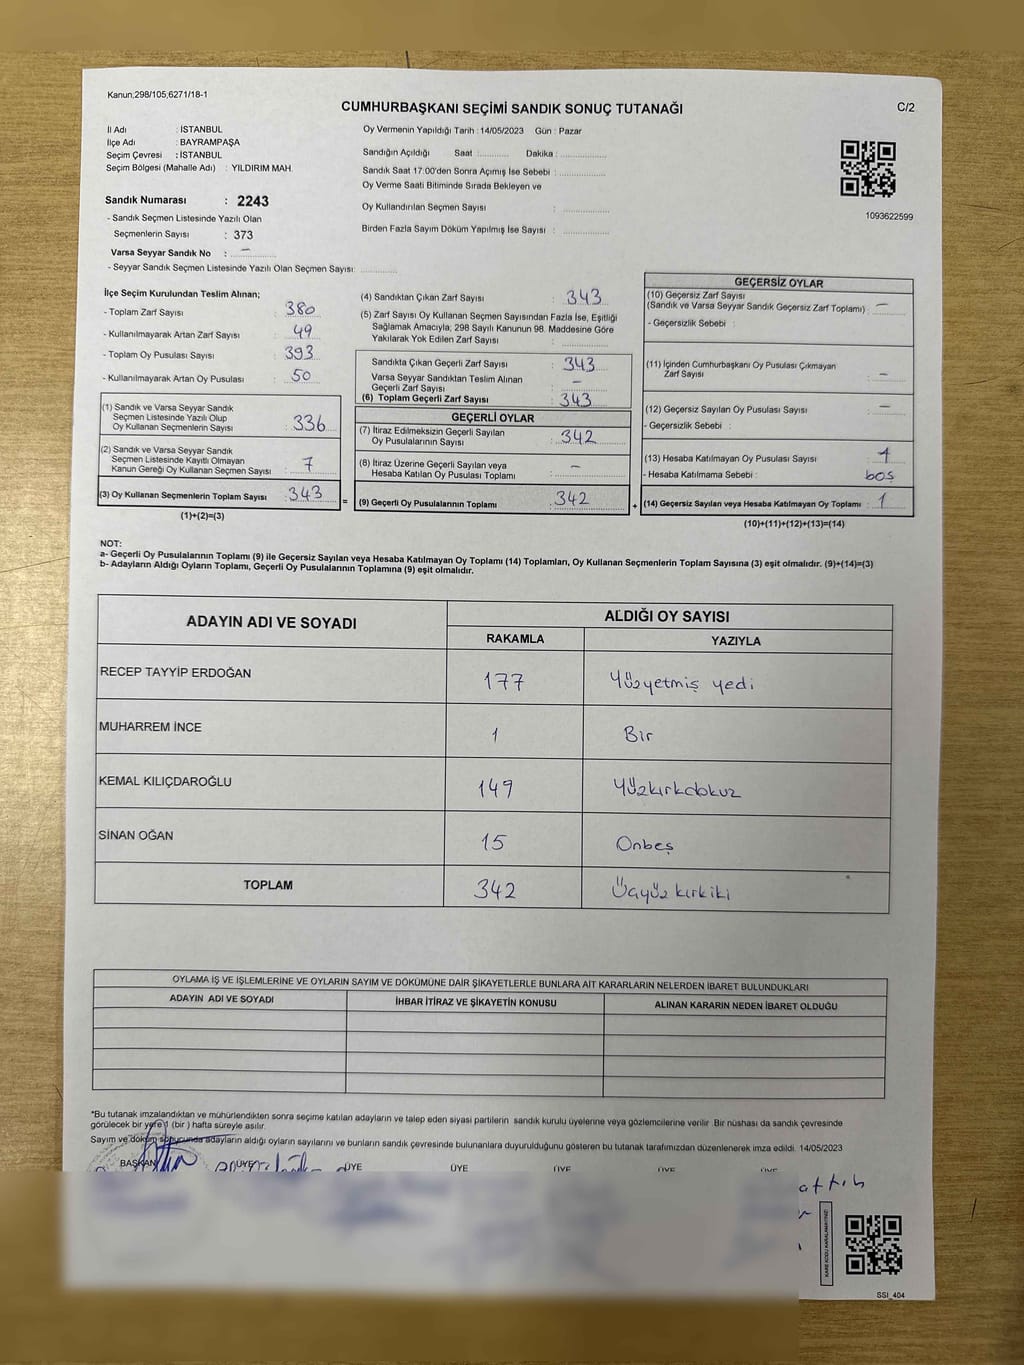 Kanun,298/105,6271/18-1
CUMHURBAŞKANI SEÇİMİ SANDIK SONUÇ TUTANAĞI
C/2
İl Adı : İSTANBUL
İlçe Adı : BAYRAMPAŞA
Seçim Çevresi : İSTANBUL
Seçim Bölgesi (Mahalle Adı) : YILDIRIM MAH.
Sandık Numarası : 2243
- Sandık Seçmen Listesinde Yazılı Olan
Seçmenlerin Sayısı : 373
Varsa Seyyar Sandık No : –
- Seyyar Sandık Seçmen Listesinde Yazılı Olan Seçmen Sayısı: ............
Oy Vermenin Yapıldığı Tarih : 14/05/2023 Gün : Pazar
Sandığın Açıldığı Saat ........... Dakika : ................
Sandık Saat 17:00'den Sonra Açımış İse Sebebi : ................
Oy Verme Saati Bitiminde Sırada Bekleyen ve
Oy Kullandırılan Seçmen Sayısı : ................
Birden Fazla Sayım Döküm Yapılmış İse Sayısı : ................
1093622599
İlçe Seçim Kurulundan Teslim Alınan;
- Toplam Zarf Sayısı : 380
- Kullanılmayarak Artan Zarf Sayısı : 49
- Toplam Oy Pusulası Sayısı : 393
- Kullanılmayarak Artan Oy Pusulası : 50
(1) Sandık ve Varsa Seyyar Sandık
Seçmen Listesinde Yazılı Olup
Oy Kullanan Seçmenlerin Sayısı : 336
(2) Sandık ve Varsa Seyyar Sandık
Seçmen Listesinde Kayıtlı Olmayan
Kanun Gereği Oy Kullanan Seçmen Sayısı : 7
(3) Oy Kullanan Seçmenlerin Toplam Sayısı : 343 =
(1)+(2)=(3)
(4) Sandıktan Çıkan Zarf Sayısı : 343
(5) Zarf Sayısı Oy Kullanan Seçmen Sayısından Fazla İse, Eşitliği
Sağlamak Amacıyla; 298 Sayılı Kanunun 98. Maddesine Göre
Yakılarak Yok Edilen Zarf Sayısı : ............
Sandıkta Çıkan Geçerli Zarf Sayısı : 343
Varsa Seyyar Sandıktan Teslim Alınan
Geçerli Zarf Sayısı : –
(6) Toplam Geçerli Zarf Sayısı : 343
GEÇERLİ OYLAR
(7) İtiraz Edilmeksizin Geçerli Sayılan
Oy Pusulalarının Sayısı : 342
(8) İtiraz Üzerine Geçerli Sayılan veya
Hesaba Katılan Oy Pusulası Toplamı : –
(9) Geçerli Oy Pusulalarının Toplamı : 342 +
GEÇERSİZ OYLAR
(10) Geçersiz Zarf Sayısı
(Sandık ve Varsa Seyyar Sandık Geçersiz Zarf Toplamı) : –
- Geçersizlik Sebebi :
(11) İçinden Cumhurbaşkanı Oy Pusulası Çıkmayan
Zarf Sayısı : –
(12) Geçersiz Sayılan Oy Pusulası Sayısı : –
- Geçersizlik Sebebi :
(13) Hesaba Katılmayan Oy Pusulası Sayısı : 1
- Hesaba Katılmama Sebebi : boş
(14) Geçersiz Sayılan veya Hesaba Katılmayan Oy Toplamı : 1
(10)+(11)+(12)+(13)=(14)
NOT:
a- Geçerli Oy Pusulalarının Toplamı (9) ile Geçersiz Sayılan veya Hesaba Katılmayan Oy Toplamı (14) Toplamları, Oy Kullanan Seçmenlerin Toplam Sayısına (3) eşit olmalıdır. (9)+(14)=(3)
b- Adayların Aldığı Oyların Toplamı, Geçerli Oy Pusulalarının Toplamına (9) eşit olmalıdır.
ADAYIN ADI VE SOYADI
ALDIĞI OY SAYISI
RAKAMLA YAZIYLA
RECEP TAYYİP ERDOĞAN 177 Yüzyetmiş yedi
MUHARREM İNCE 1 Bir
KEMAL KILIÇDAROĞLU 149 Yüzkırkdokuz
SİNAN OĞAN 15 Onbeş
TOPLAM 342 Üçyüz kırkiki
OYLAMA İŞ VE İŞLEMLERİNE VE OYLARIN SAYIM VE DÖKÜMÜNE DAİR ŞİKAYETLERLE BUNLARA AİT KARARLARIN NELERDEN İBARET BULUNDUKLARI
ADAYIN ADI VE SOYADI İHBAR İTİRAZ VE ŞİKAYETİN KONUSU ALINAN KARARIN NEDEN İBARET OLDUĞU
*Bu tutanak imzalandıktan ve mühürlendikten sonra seçime katılan adayların ve talep eden siyasi partilerin sandık kurulu üyelerine veya gözlemcilerine verilir. Bir nüshası da sandık çevresinde
görülecek bir yere 1 (bir ) hafta süreyle asılır.
Sayım ve döküm sonucunda adayların aldığı oyların sayılarını ve bunların sandık çevresinde bulunanlara duyurulduğunu gösteren bu tutanak tarafımızdan düzenlenerek imza edildi. 14/05/2023
BAŞKAN ÜYE ÜYE ÜYE ÜYE ÜYE ÜYE
SSI_404